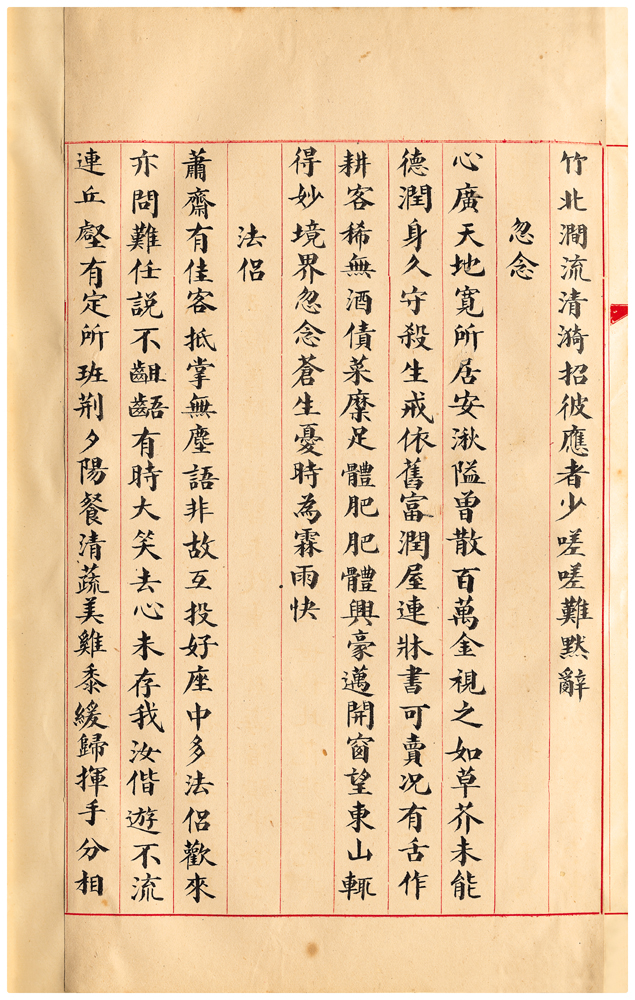 竹北澗流清漪招彼應者少嗟嗟難默辭
忽念
心廣天地寬所居安湫隘曾散百萬金視之如草芥未能
德潤身久守殺生戒依舊富潤屋連牀書可賣况有舌作
耕客稀無酒債菜糜足體肥肥體興豪邁開窗望東山輒
得妙境界忽念蒼生憂時為霖雨快
法侶
蕭齋有佳客抵掌無塵語非故互投好座中多法侶歡來
亦問難任説不齟齬有時大笑去心未存我汝偕遊不流
連丘壑有定所班荆夕陽餐清蔬美雞黍緩歸揮手分相